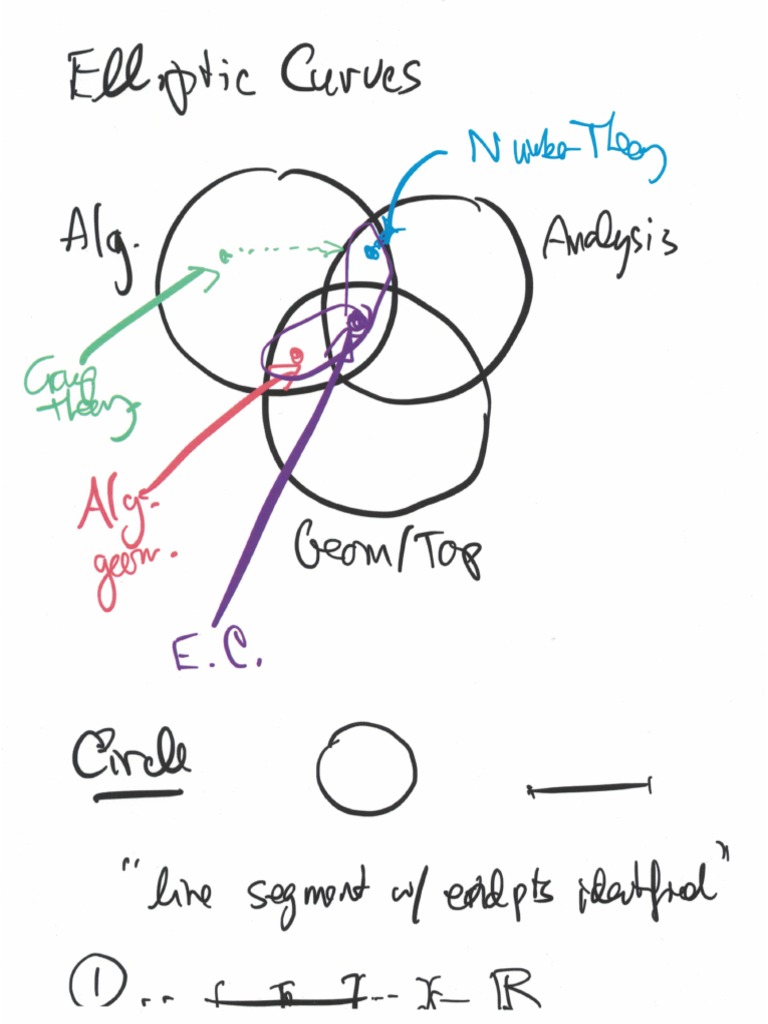 Elliptic Curves
Number Theory
Alg.
Analysis
Group
theory
Alg.
geom.
Geom/Top
E.C.
Circle
"line segment w/ endpts identified"
① ..
... ℝ